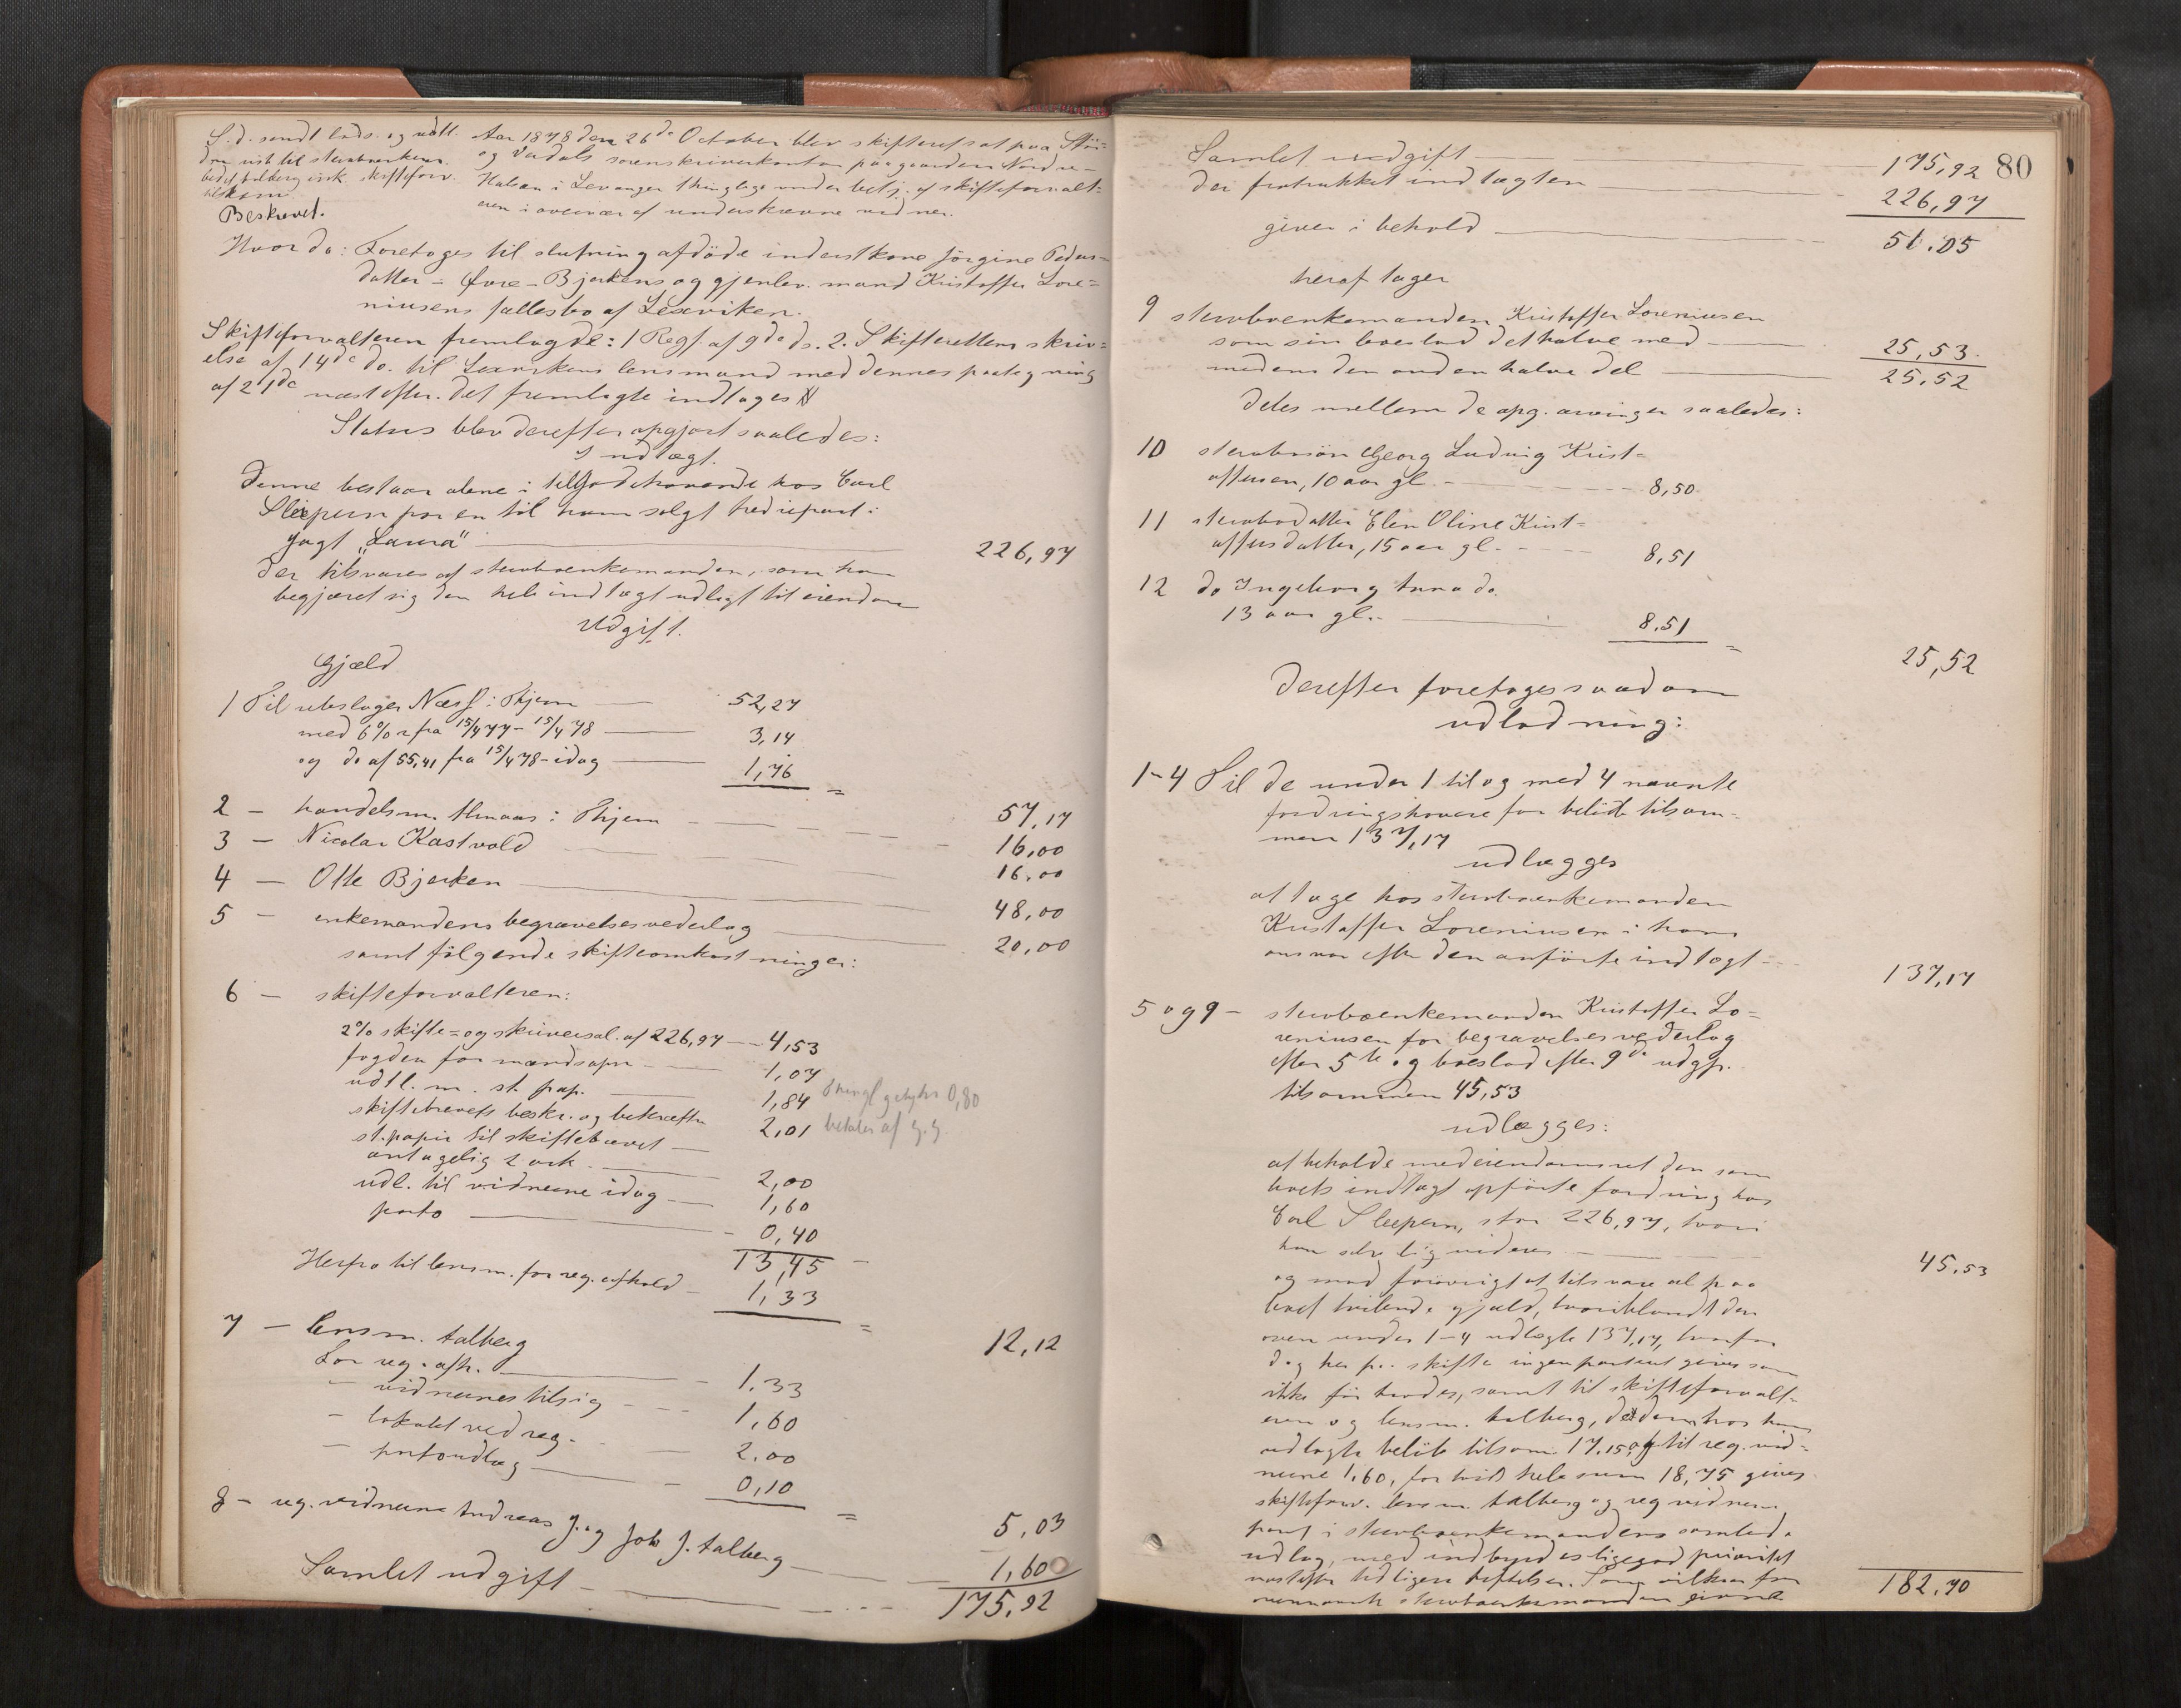 S. d. sendt lods. og udtl.
den udst til sterboenkem.
Beskrevet.
Aar 1878 den 26de October blev skifteret sat paa Stör-
og Verdals sorenskriverkontor paa gaarden Nordre-
Halsan i Levanger thinglag under betj. af skifteforvalt-
eren i overvær af underskrevne vidner.
Hvor da: Foretoges til slutning afdöde inderstkone Jörgine Peders-
datter Øvre-Bjerkens og gjenlev. mand Kristoffer Lore-
niusens fællesbo af Lexviken.
Skifteforvalteren fremlagde: 1 Regf. af 9de ds. 2. Skifterettens skriv-
else af 14de do. til Lexvikens lensmand med dennes paategning
af 21de næstefter. Det fremlagte indtages
Status blev derefter opgjort saaledes:
Indtægt.
Denne bestaar alene i tilgodehavende hos Carl
Sliper for en til ham solgt trediepart i
Jagt "Laura" 226,97
der tilsvares af sterboenkemanden, som har
begjæret sig den hele indtægt udlagt til eiendom
Udgift.
Gjæld
1 Til rebslager Næss i Thjem 52,27
med 6% r fra 15/4 77 - 15/4 78 3,14
og do af 55,41 fra 15/4 78 - idag 1,76 =
57,17
2 - handelsm. Almaas i Thjem 16,00
3 - Nicolai Kastvold 16,00
4 - Otte Bjerken 48,00
5 - enkemandens begravelsesvederlag 20,00
samt fölgende skifteomkostninger:
6 - skifteforvalteren:
2% skifte- og skriversal. af 226,97 4,53
fogden for mandsopn 1,07
udtl. m. st. pap. 1,84
skiftebrevets beskr. og bekræftn 2,01
Thingl gebyhr 0,80
betales af
st. papir til skiftebrevet
antagelig 2 ark 2,00
udl. til vidnerne idag 1,60
porto 0,40
13,45
Herfra til lensm. for reg. afhold 1,33 =
12,12
7 - lensm. Aalberg
for reg. afh. 1,33
- vidnernes tilsig 1,60
- lokalet ved reg. 2,00
- portoudlæg 0,10 =
5,03
8 - reg. vidnerne Andreas J. og Joh J. Aalberg 1,60
Samlet udgift 175,92
80
Samlet udgift 175,92
der fratrukket indtægten 226,97
giver i behold 51,05
heraf tager
9 sterboenkemanden Kristoffer Loreniusen
som sin boeslod det halve med 25,53
medens den anden halve del 25,52
deles mellem de opg. arvinger saaledes:
10 sterbosön Georg Ludvig Krist-
offersen, 10 aar gl. 8,50
11 sterbodatter Elen Oline Krist-
offersdatter, 15 aar gl. 8,51
12 do Ingeborg Anna do.
13 aar gl. 8,51 =
25,52
Derefter foretoges saadan
udlodning:
1-4 Til de under 1 til og med 4 nævnte
fordringshavere for belöb tilsam-
men 137,17
udlægges
at tage hos sterboenkemanden
Kristoffer Loreniusen i hans
ansvar efter den anförte indtægt 137,17
5 og 9 - sterboenkemanden Kristoffer Lo-
reniusen for begravelsesvederlag
efter 5te og boeslod efter 9de udgp.
tilsammen 45,53
udlægges:
at beholde med eiendomsret den som
boets indtægt opförte fordring hos
Carl Slipern, stor 226,97, hvori
han selv lig videres 45,53
og mod forövrigt at tilsvare al paa
boet hvilende gjæld, hvoriblandt den
oven under 1-4 udlagte 137,17, hvorfor
dog her paa skifte ingen panteret gives som
ikke för havdes, samt til skifteforvalt-
eren og lensm. Aalberg, det dem hos ham
udlagte belöb tilsam. 17,15, og til reg. vid-
nerne 1,60, for hvis hele sum 18,75 gives
skifteforv. lensm. Aalberg og reg vidnerne
pant i sterboenkemandens samlede
udlæg, med indbyrdes ligegod prioritet
næstefter tidligere heftelser. Som vilkaar for
ovennævnte sterboenkemanden givne
182,70